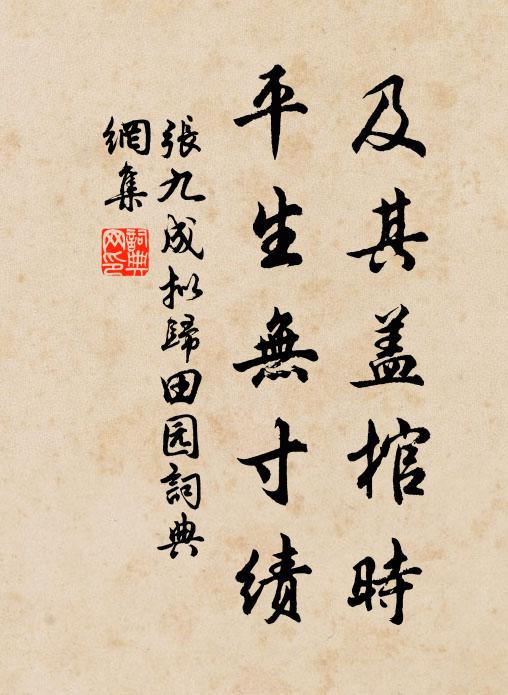 及其盖棺時
平生無寸績
張九成拟歸田园詞典
網集
詞典
网印